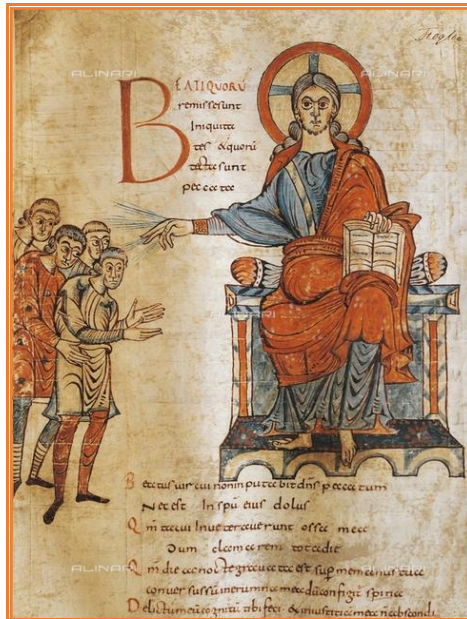 ALINARI
BEATIQUORŪ
remissesunt
Iniquita
tes &quorū
tectesunt
peccata
ALINARI
ALINARI
Beatus vir cui noninputabit dn̄s peccatum
Nec est In spū eius dolus
Qm̄ tacui Inueterauerunt ossa mea
Dum clamarem tota die
Qm̄ die ac nocte grauata est sup me manus tua
conuersussū inerumna mea dūconfigit spina
Delictum meū cognitū tibi feci & iniustitia mea n̄ abscondi